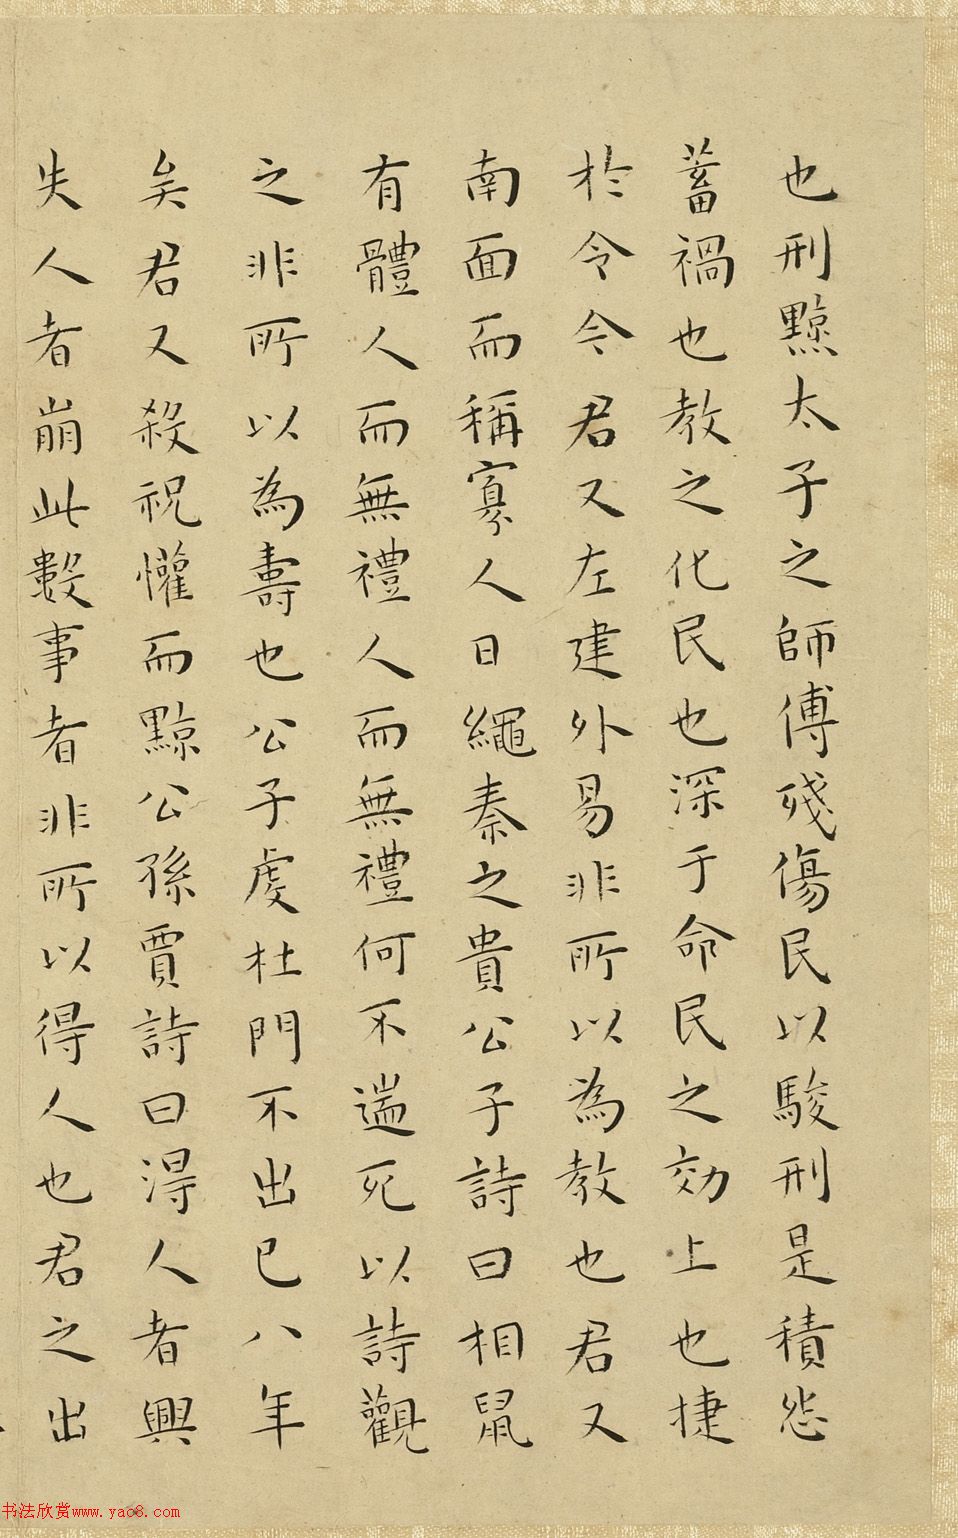 也刑黥太子之師傅殘傷民以駿刑是積怨
蓄禍也教之化民也深于命民之効上也捷
於令今君又左建外易非所以為教也君又
南面而稱寡人日繩秦之貴公子詩曰相鼠
有體人而無禮人而無禮何不遄死以詩觀
之非所以為壽也公子虔杜門不出已八年
矣君又殺祝懽而黥公孫賈詩曰得人者興
失人者崩此數事者非所以得人也君之出
书法欣赏www.yac8.com